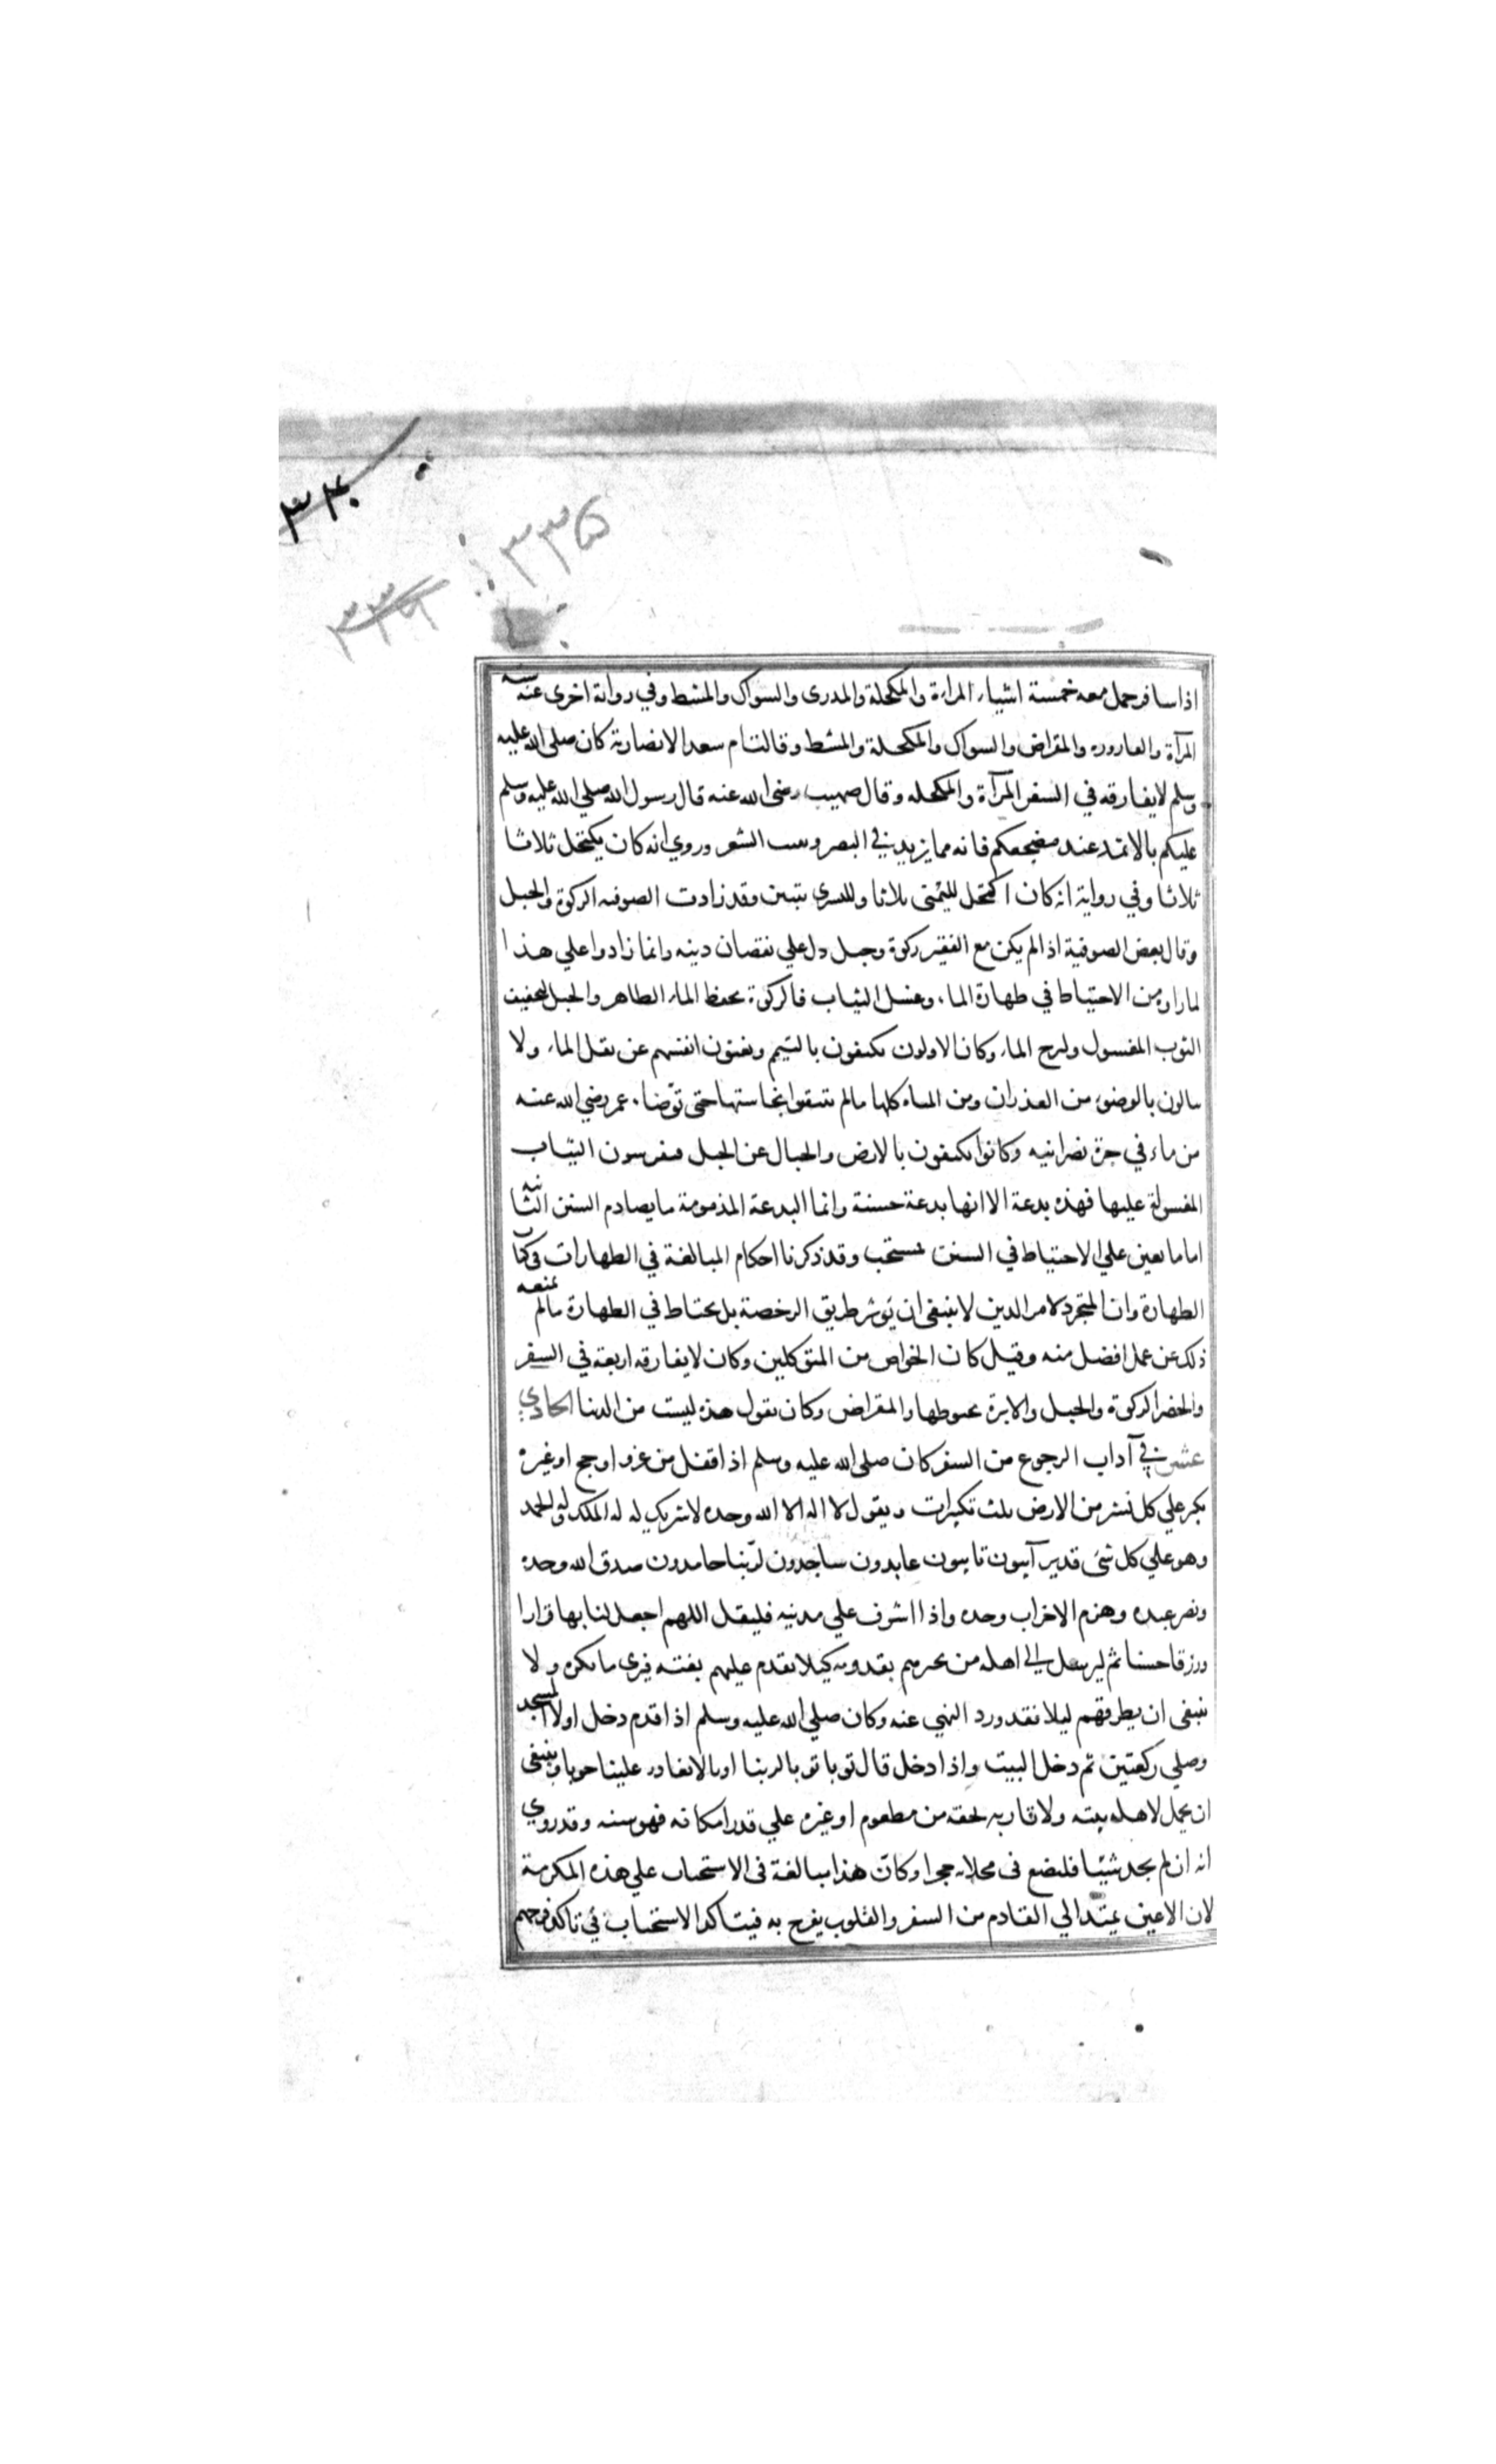 ٣٣٠
٣٣٥
٣٣٩
اذا سافر حمل معه خمسة اشياء المراءة والمكحلة والمدرى والسواك والمشط وفي رواية اخرى عنه ستة
المرآة والعاروره والمقراض والسواك والمكحلة والمشط وقالت ام سعد الانصارية كان صلى الله عليه
وسلم لا يفارقه في السفر المرآة والمكحله وقال صهيب رضى الله عنه قال رسول الله صلي الله عليه وسلم
عليكم بالاثمد عند مضجعكم فانه مما يزيد في البصر وينبت الشعر وروي انه كان يكتحل ثلاثا
ثلاثا وفي رواية انه كان اكتحل لليمنى ثلاثا ولليسرى ثنتين وقد زادت الصوفيه الركوة والحبل
وقال بعض الصوفية اذا لم يكن مع الفقير ركوة وحبل دل علي نقصان دينه وانما زادوا علي هذا
لما راوه من الاحتياط في طهارة الماء وغسل الثياب فالركوة بحفظ الماء الطاهر والحبل لتجفيف
الثوب المغسول ولنزح الماء وكان الاولون يكتفون بالتيمم ويغنون انفسهم عن نقل الماء ولا
يبالون بالوضوء من الغدران ومن المياه كلها ما لم يتيقنوا نجاستها حتى توضاء عمر رضي الله عنه
من ماء في جرة نصرانيه وكانوا يكتفون بالارض والجبال عن الحبل فيفرسون الثياب
المغسولة عليها فهذه بدعة الا انها بدعة حسنة وانما البدعة المذمومة ما يصادم السنن الثابتة
اما ما يعين علي الاحتياط في السنن فمستحب وقد ذكرنا احكام المبالغة في الطهارات في كتاب
الطهارة وان المتجرد لامر الدين لا ينبغى ان يؤثر طريق الرخصة بل يحتاط في الطهارة ما لم يمنعه
ذلك عن عمل افضل منه وقيل كان الخواص من المتوكلين وكان لا يفارقه اربعة في السفر
والحضر الركوة والحبل والابرة بخيوطها والمقراض وكان يقول هذه ليست من الدنيا الحادي
عشر في آداب الرجوع من السفر كان صلى الله عليه وسلم اذا قفل من غزو او حج او غيره
يكبر علي كل نشز من الارض ثلث تكبيرات ويقول لا اله الا الله وحده لا شريك له له الملك وله الحمد
وهو علي كل شئ قدير آيبون تايبون عابدون ساجدون لربنا حامدون صدق الله وحده
ونصر عبده وهزم الاحزاب وحده واذا اشرف علي مدينه فليقل اللهم اجعل لنا بها قرارا
ورزقا حسنا ثم ليرسل الي اهله من يخبرهم بقدومه كيلا يقدم عليهم بغتة فيرى ما يكره ولا
ينبغى ان يطرقهم ليلا فقد ورد النهي عنه وكان صلي الله عليه وسلم اذا قدم دخل اولا المسجد
وصلي ركعتين ثم دخل البيت واذا دخل قال توبا توبا لربنا اوبا لا يغادر علينا حوبا وينبغى
ان يحمل لاهله بيته ولاقاربه تحفه من مطعوم او غيره علي قدر امكانه فهو سنه وقد روي
انه ان لم يجد شيئا فليضع فى مخلاته حجرا وكان هذا مبالغة فى الاستحباب علي هذه المكرمة
لان الاعين يمتد الي القادم من السفر والقلوب يفرح به فيتاكد الاستحباب في تاكد فرحهم